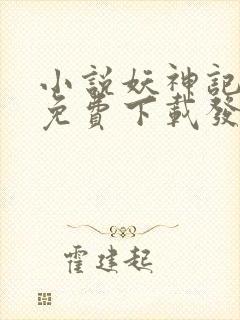 小說妖神記
免費下載發
霍建起